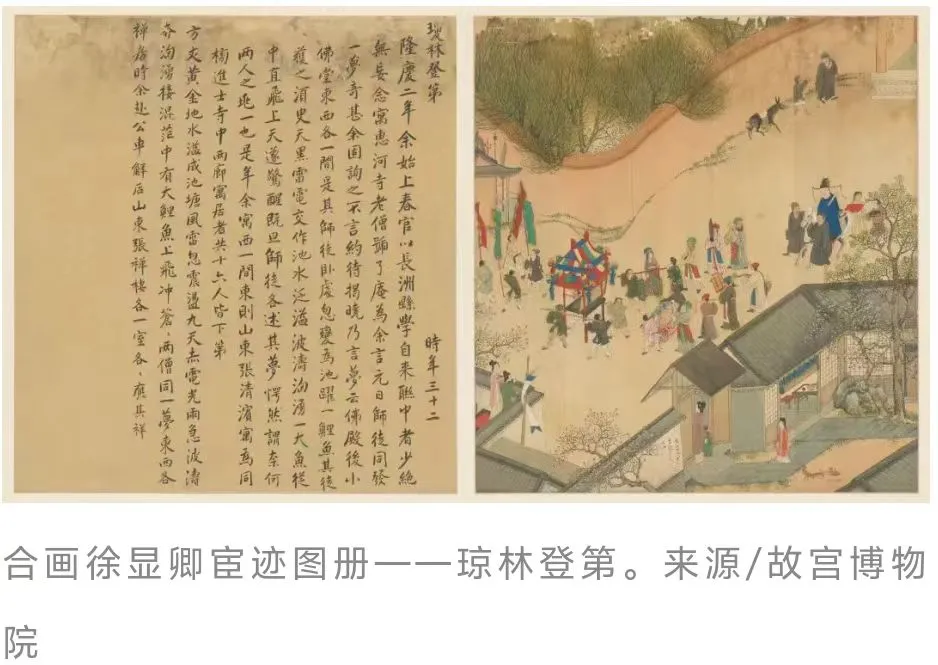 瓊林登第
時年三十二
隆慶二年余始上春官以長洲縣學自来聯中者少絕
無妄念寓惠河寺老僧號了庵為余言元日師徒同發
一夢奇甚余固詢之不言約待揭曉乃言夢云佛殿後小
佛堂東西各一間是其師徒卧處忽變為池躍一鯉魚其徒
獲之須臾天黑雷電交作池水泛溢波濤洶湧一大魚從
中直飛上天遂驚醒既旦師徒各述其夢愕然謂奈何
兩人之兆一也是年余寓西一間東則山東張清濱寓焉同
榜進士寺中兩廊寓居者共十六人皆下第
方夾黃金地水溢成池塘風雷忽震盪九天赤電光雨急波濤
奔洶湧接混茫中有大鯉魚上飛冲蒼、兩僧同一夢東西各
禪房時余赴公車解后山東張禪樓各一室各、應其祥
合画徐显卿宦迹图册——琼林登第。来源/故宫博物
院